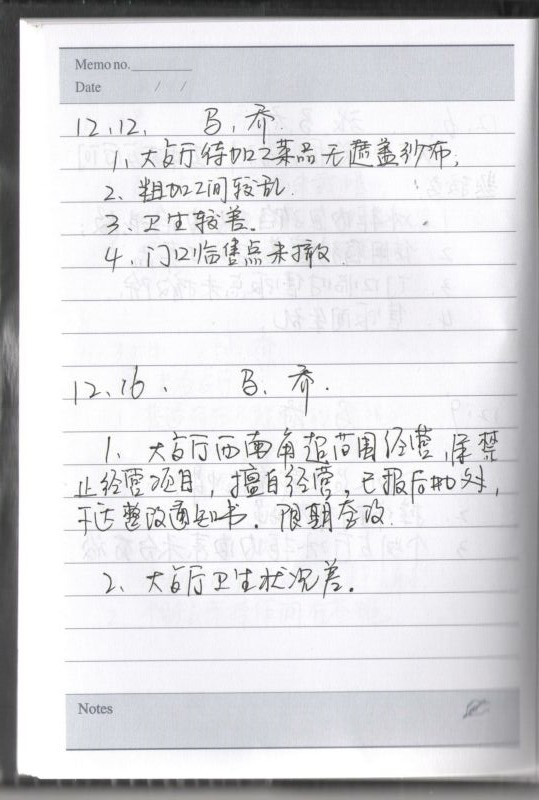 Memo no.
Date / /
12.12. 马.乔.
1、大占厅待加工菜品无遮盖纱布,
2、粗加工间较乱.
3、卫生较差。
4、门口临售点未撤
12.16. 马.乔.
1、大占厅西南角超范围经营,属禁
止经营项目,擅自经营,已报后勤处,
下达整改通知书。限期整改.
2、大占厅卫生状况差。
Notes